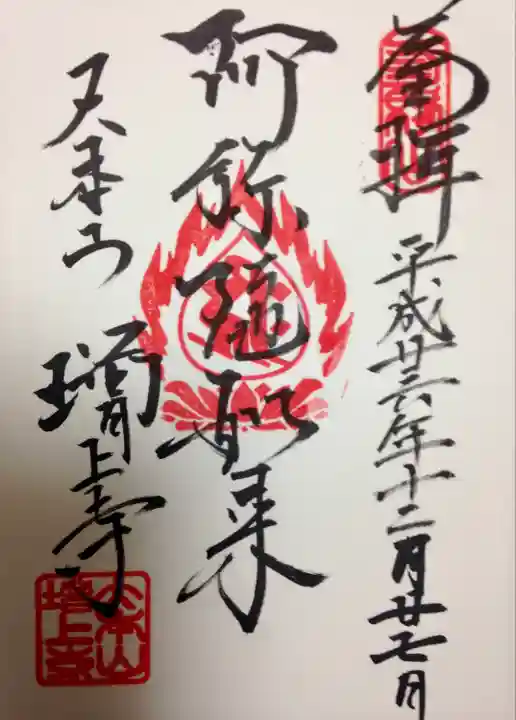 奉拝
平成廿六年十二月廿七日
阿弥陀如来
大本山 増上寺
大本山
増上寺